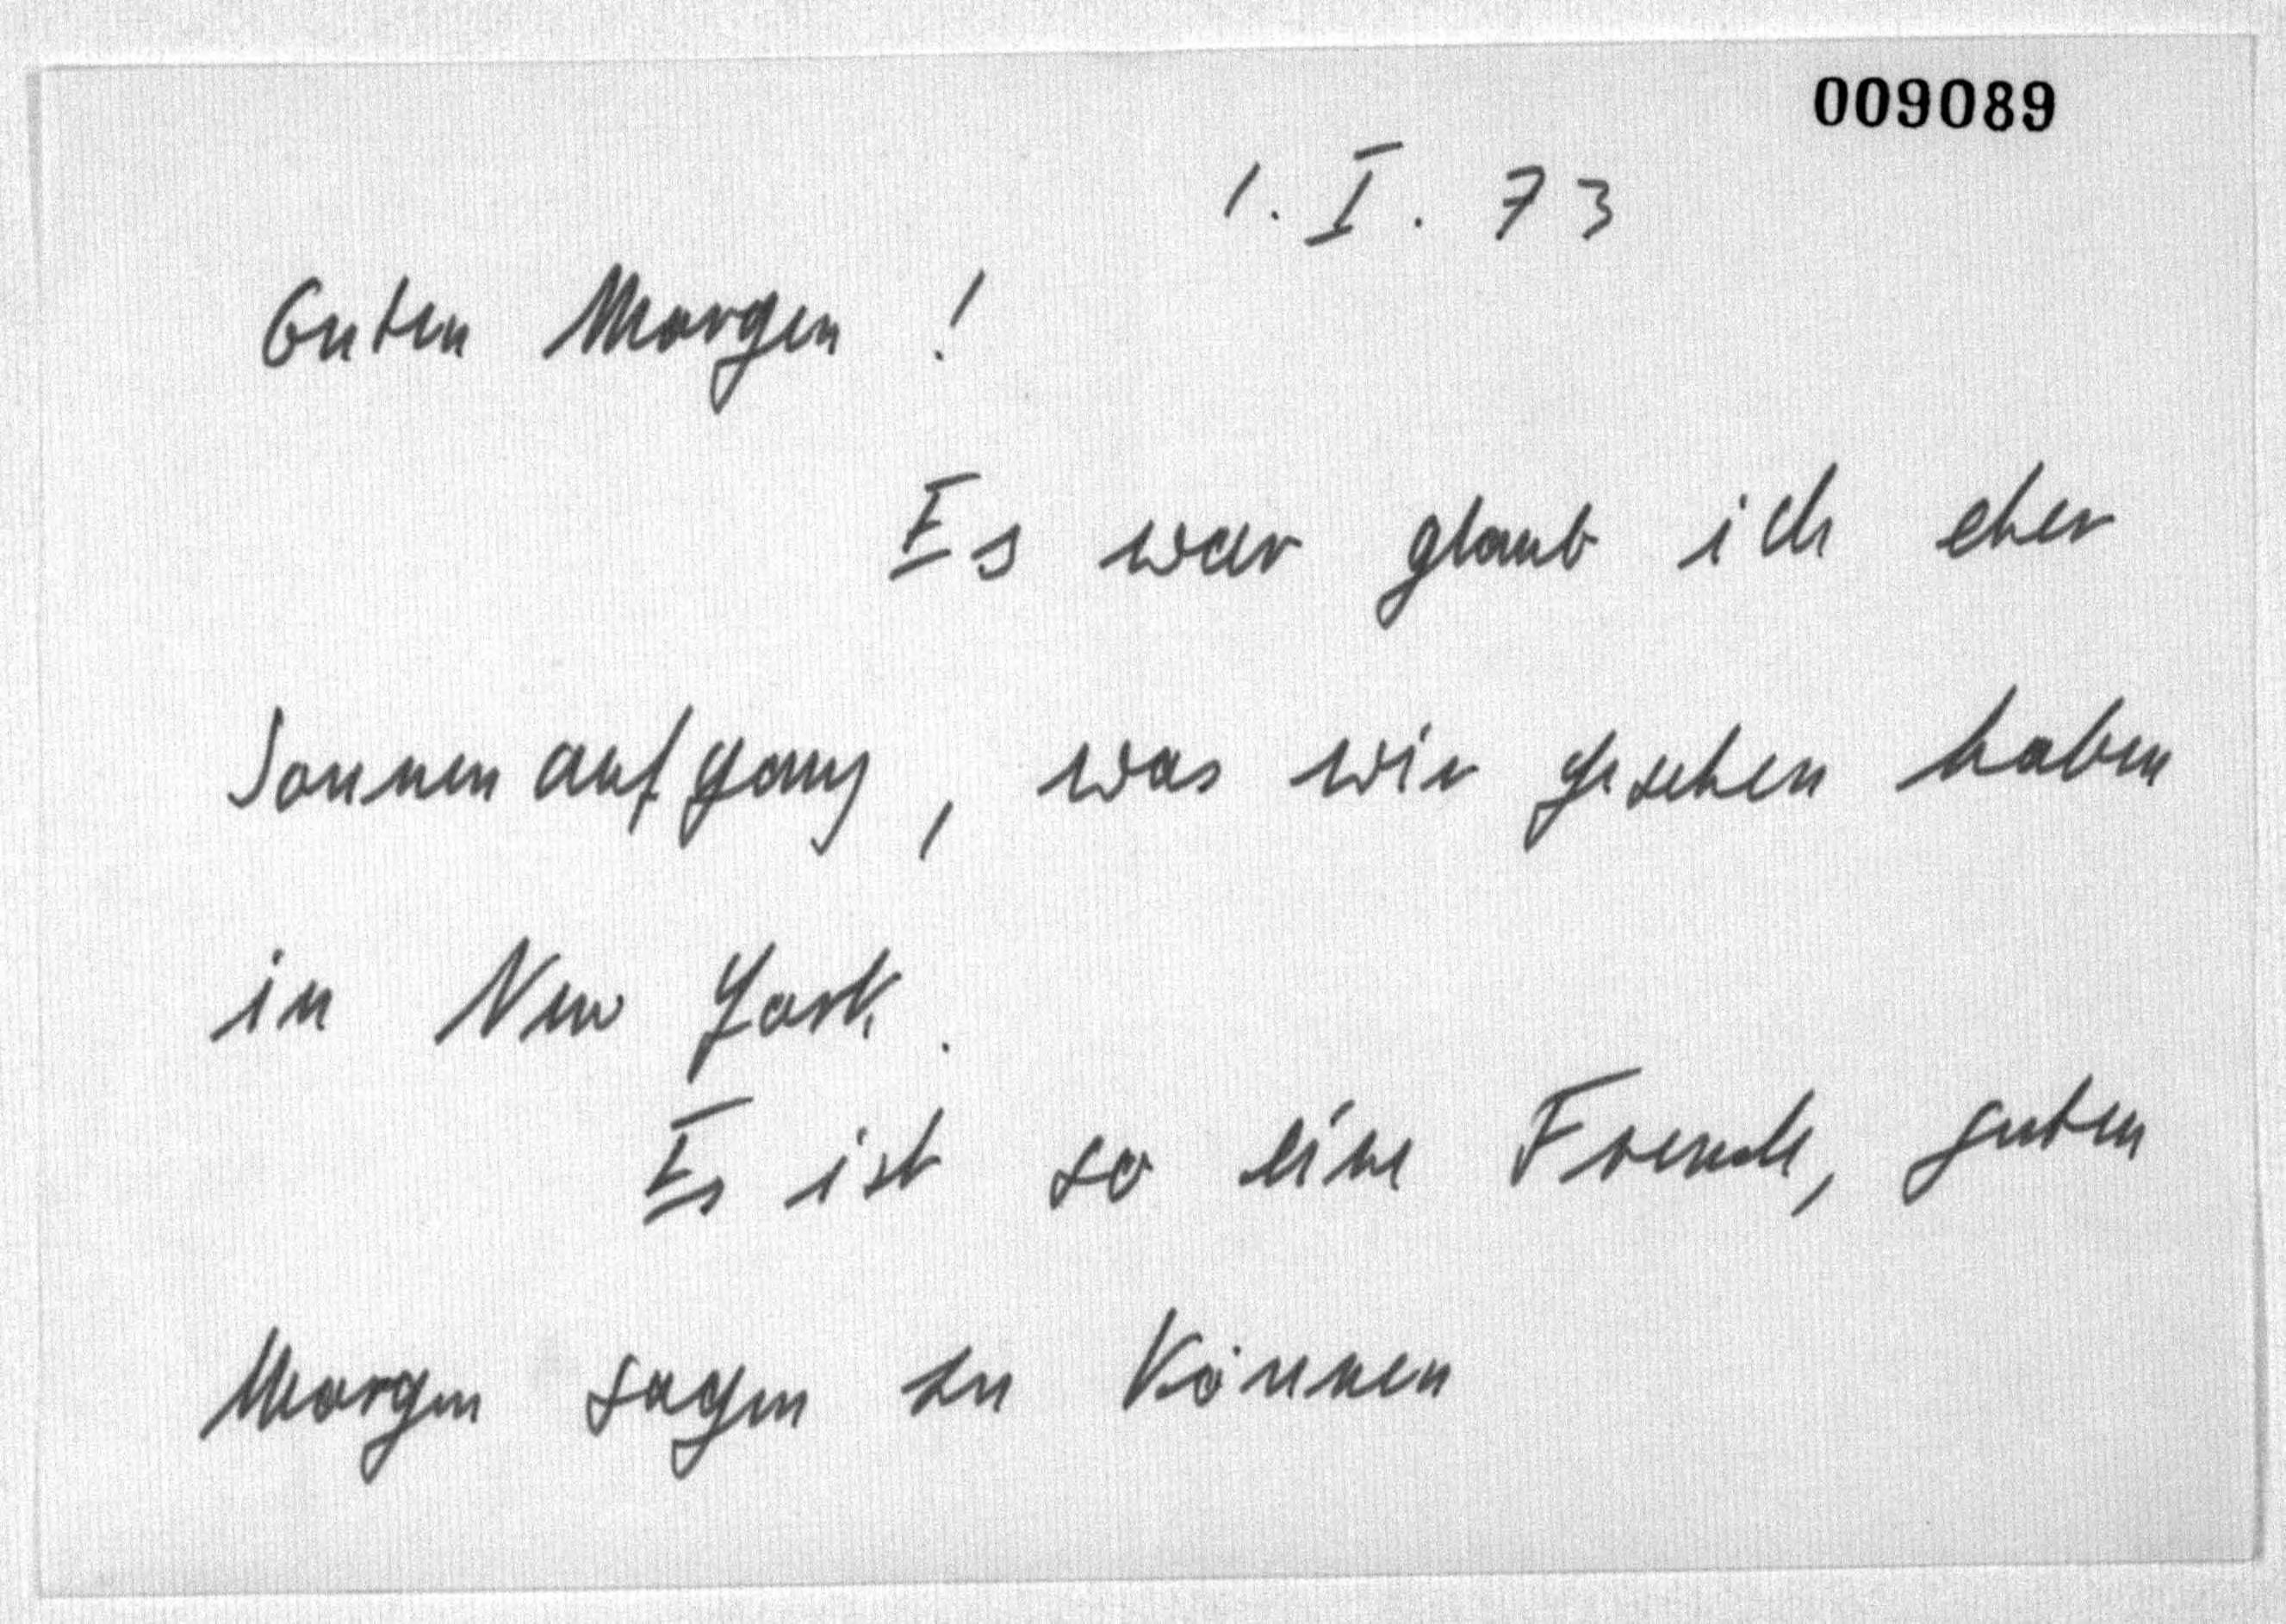 009089
1. I. 73
Guten Morgen !
Es war glaub ich eher
Sonnenaufgang, was wir gesehen haben
in New York.
Es ist so eine Freude, guten
Morgen sagen zu können